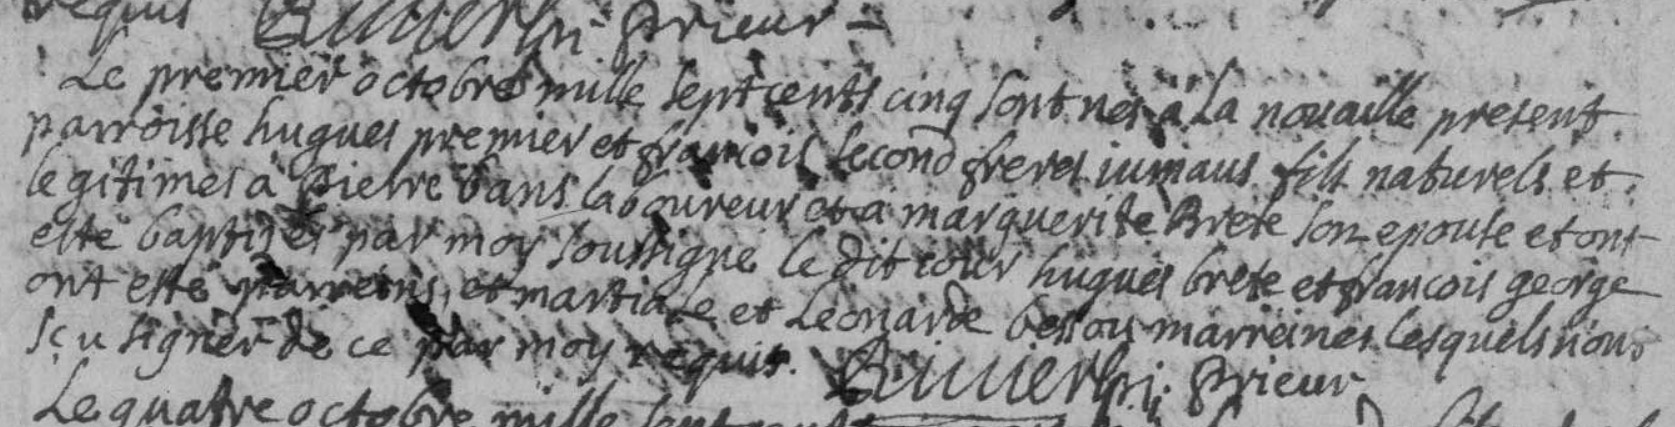 requis prieur
Le premier octobre mille septcents cinq sont nes a La nouaille present
parroisse hugues premier et francois second freres iumaus fils naturels et
legitimes a Pierre bans laboureur et a marguerite Brete son epouse et ont
esté baptises par moy soussigné le dit iour hugues brete et francois george
ont esté parreins, et martiale et Leonarde bessou marreines lesquels n'ont
sçu signer de ce par moy requis. prieur
Le quatre octobre mille sept cents